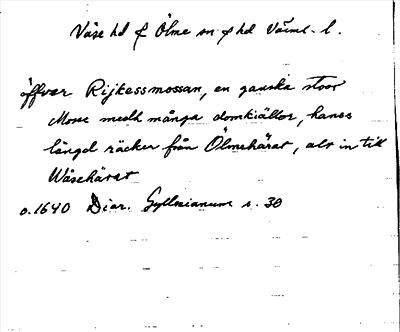 Väse hd & Ölme sn & hd Värml. l.
öffver Rijkessmossan, en ganska stoor
Mosse medh många domkiällor, hanss
längd räcker från Ölmehärat, alt in till
Wäsehärat
o.1640 Diar. Gyllenianum s. 30